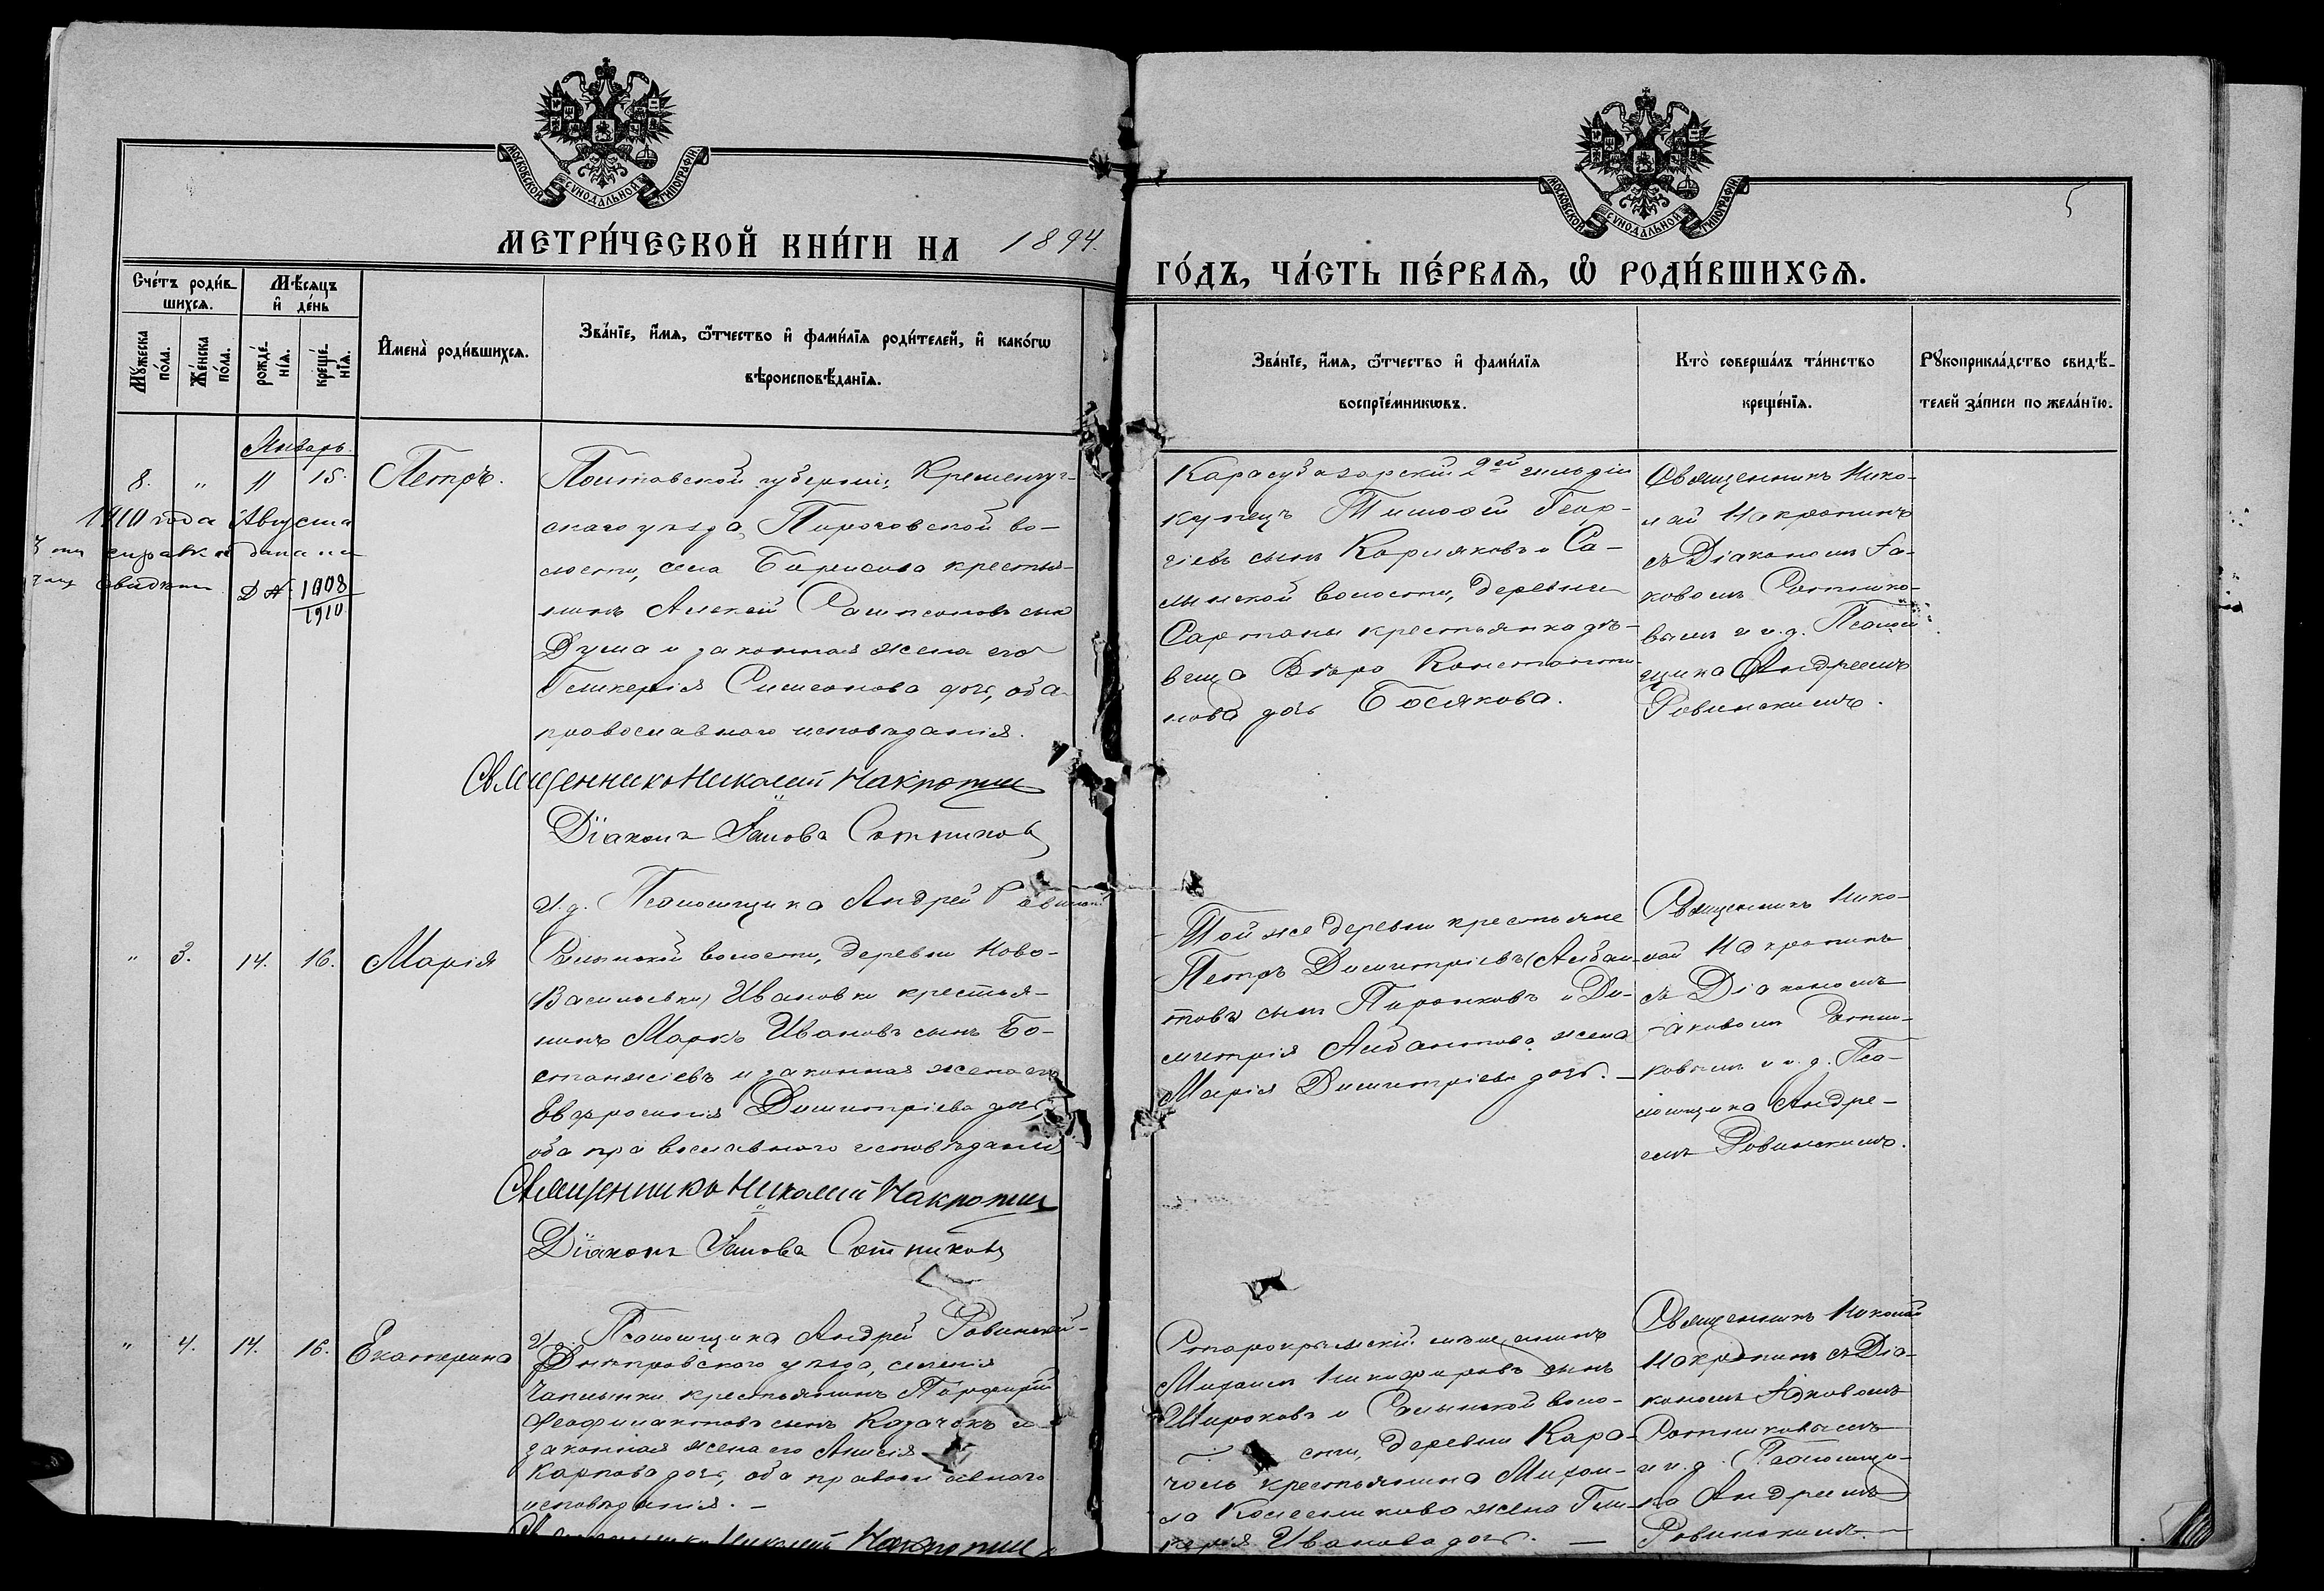 МОСКОВСКОЙ СУНОДАЛЬНОЙ ТИПОГРАФІИ
МЕТРИ́ЧЕСКОЙ КНИ́ГИ НА 1894.
Сче́тъ роди́в-
шихся.
Мѣ́сяцъ
и҆ де́нь
Мꙋ́жеска
по́ла.
Же́нска
по́ла.
рожде́-
нїѧ.
креще́-
нїѧ.
И҆мена̀ роди́вшихсѧ.
Зва́нїе, и҆́мѧ, ѻ҆́тчество и҆ фами́лїѧ роди́телей, и҆ како́гѡ
вѣроисповѣ́данїѧ.
Январь.
8. " 11 15. Петръ.
Полтавской губерніи, Кременчуг-
скаго уѣзда, Пироговской во-
лости, села Борисова крестья-
нинъ Алексѣй Сампсоновъ сынъ
Дума и законная жена его
Гликерія Симеонова дочь, оба
православнаго исповѣданія.
1910 года Августа
справка дана
Д № 1008
1910
Священникъ Николай Накропин
Діаконъ Іаковъ Сотников
И. д. Псаломщика Андрей Ровинскій
" 3. 14. 16. Марія
волости, деревни Ново-
(Васильевки) Ивановки крестья-
нинъ Марко Ивановъ сынъ Бо-
станжіевъ и законная жена его
Евфросинія Димитріева дочь,
оба православнаго исповѣданія
Священникъ Николай Накропин
Діаконъ Іаковъ Сотниковъ
И. д. Псаломщика Андрей Ровинскій
" 4. 14. 16. Екатерина
Днѣпровскаго уѣзда, селенія
Чаплынки крестьянинъ Порфирій
Феофилактовъ сынъ Казачокъ и
законная жена его Анисія
Карпова дочь, оба православнаго
исповѣданія. —
Священникъ Николай Накропин
МОСКОВСКОЙ СУНОДАЛЬНОЙ ТИПОГРАФІИ
5
ГО́ДЪ, ЧА́СТЬ ПЕ́РВАѦ, Ѡ҆ РОДИ́ВШИХСѦ.
Зва́нїе, и҆́мѧ, ѻ҆́тчество и҆ фами́лїѧ
воспрїе́мникѡвъ.
Кто̀ соверша́лъ та́инство
креще́нїѧ.
Рꙋкоприкла́дство свидѣ́-
телей за́писи по жела́нїю.
Карасубазарскій 2ой гильдіи
купецъ Тимофей Геор-
гіевъ сынъ Каріяковъ и Са-
лынской волости, деревни
Сартаны крестьянка дѣ-
вица Вѣра Константи-
нова дочь Босякова.
Священникъ Нико-
лай Накропинъ
съ Діакономъ Іа-
ковомъ Сотнико-
вымъ и и. д. Псалом-
щика Андреемъ
Ровинскимъ.
Той же деревни крестьяне
Петръ Димитріевъ (Албан-
товъ) сынъ Пиронковъ и Ди-
митрія Албантова жена
Марія Димитріева дочь. —
Священникъ Нико-
лай Накропинъ
съ Діакономъ
Іаковомъ Сотни-
ковымъ и и. д. Пса-
ломщика Андре-
емъ Ровинскимъ.
Старокрымскій мѣщанинъ
Михаилъ Никифоровъ сынъ
Широковъ и Салынской воло-
сти, деревни Кара-
чоль крестьянина Михаи-
ла Колесникова жена Гли-
керія Иванова дочь. —
Священникъ Николай
Накропинъ съ Діа-
кономъ Іаковомъ
Сотниковымъ
и и. д. Псаломщи-
ка Андреемъ
Ровинскимъ. —